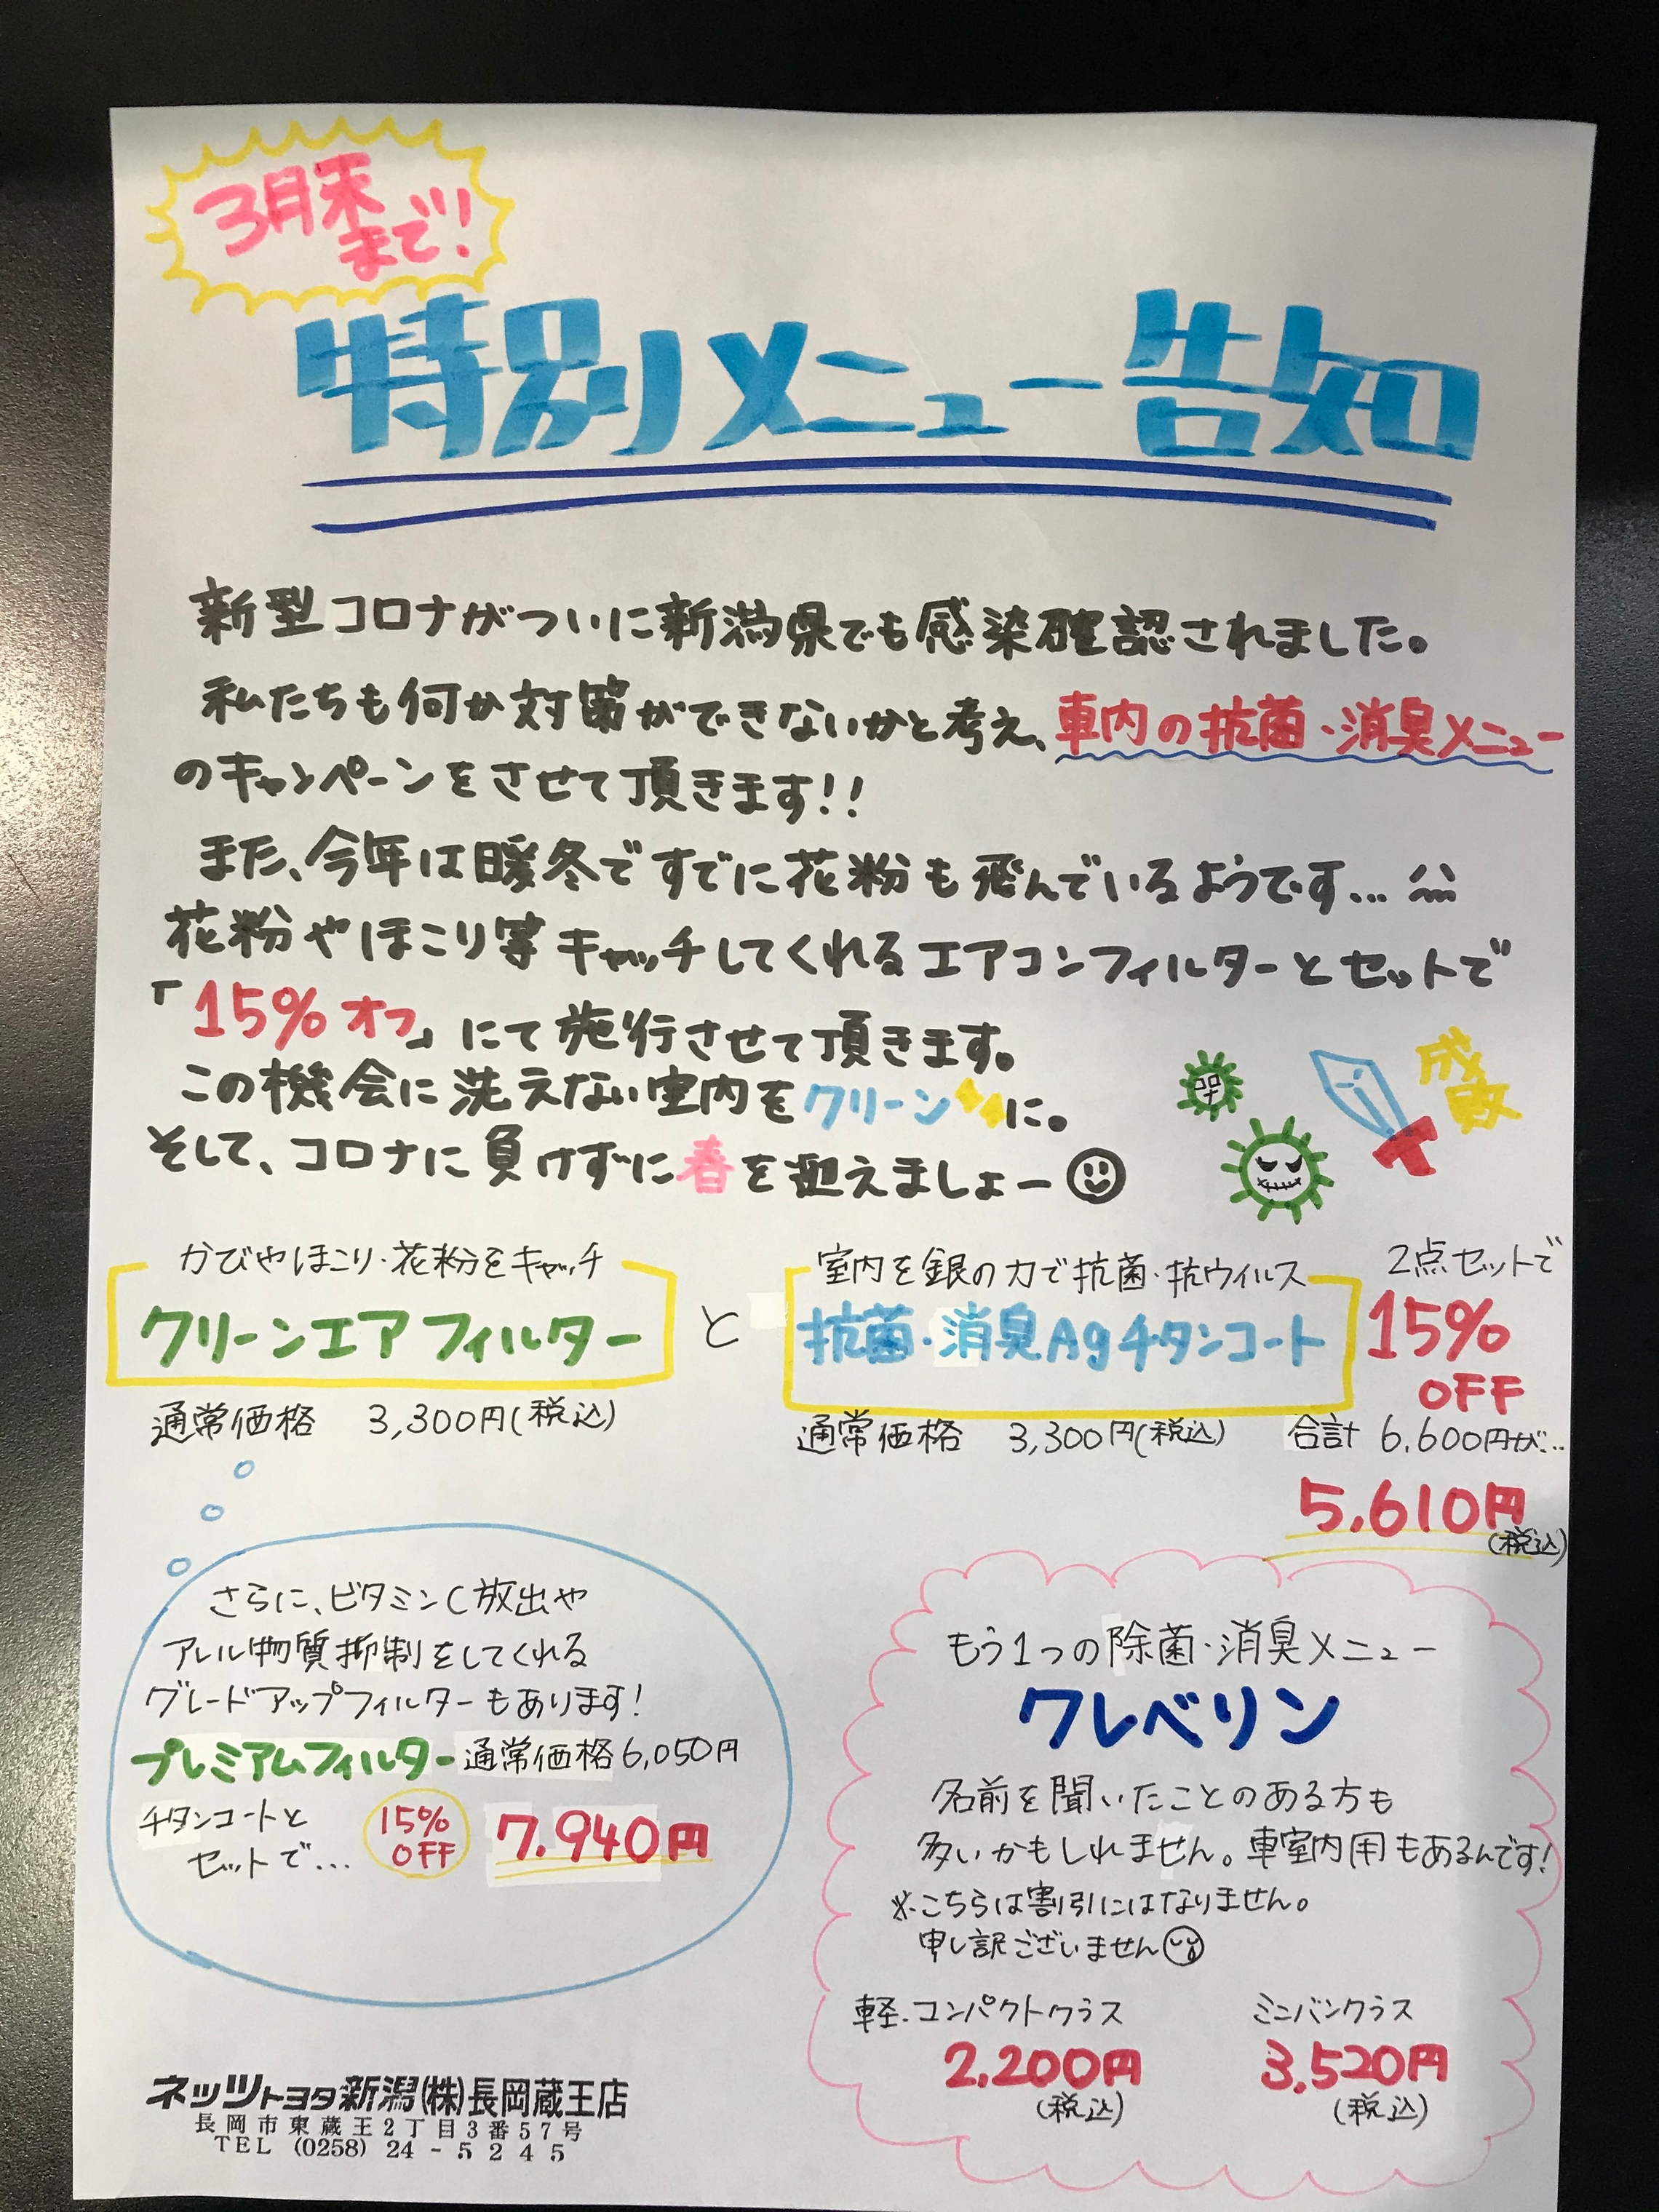 3月末
まで!
特別メニュー告知
新型コロナがついに新潟県でも感染確認されました。
私たちも何か対策ができないかと考え、車内の抗菌・消臭メニュー
のキャンペーンをさせて頂きます!!
また、今年は暖冬ですでに花粉も飛んでいるようです…
花粉やほこり等キャッチしてくれるエアコンフィルターとセットで
「15%オフ」にて施行させて頂きます。
この機会に洗えない室内をクリーンに。
そして、コロナに負けずに春を迎えましょー
成敗
かびやほこり・花粉をキャッチ
クリーンエアフィルター
通常価格 3,300円(税込)
と
室内を銀の力で抗菌・抗ウイルス
抗菌・消臭Agチタンコート
通常価格 3,300円(税込)
2点セットで
15%
OFF
合計 6,600円が…
5,610円
(税込)
さらに、ビタミンC放出や
アレル物質抑制をしてくれる
グレードアップフィルターもあります!
プレミアムフィルター 通常価格6,050円
チタンコートと
セットで…
15%
OFF
7,940円
もう1つの除菌・消臭メニュー
クレベリン
名前を聞いたことのある方も
多いかもしれません。車室内用もあるんです!
※こちらは割引にはなりません。
申し訳ございません
軽・コンパクトクラス
2,200円
(税込)
ミニバンクラス
3,520円
(税込)
ネッツトヨタ新潟(株)長岡蔵王店
長岡市東蔵王2丁目3番57号
TEL (0258) 24-5245